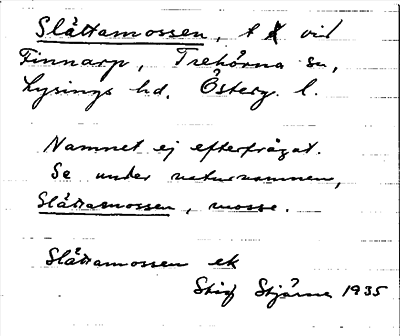 Slättamossen, t vid
Finnarp, Trehörna sn,
Lysings hd. Österg. l.
Namnet ej efterfrågat.
Se under naturnamnen,
Slättamossen, mosse.
Slättamossen ek
Stig Stjärne 1935